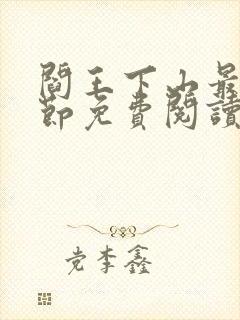 閻王下山最
節免費閱讀
党李鑫